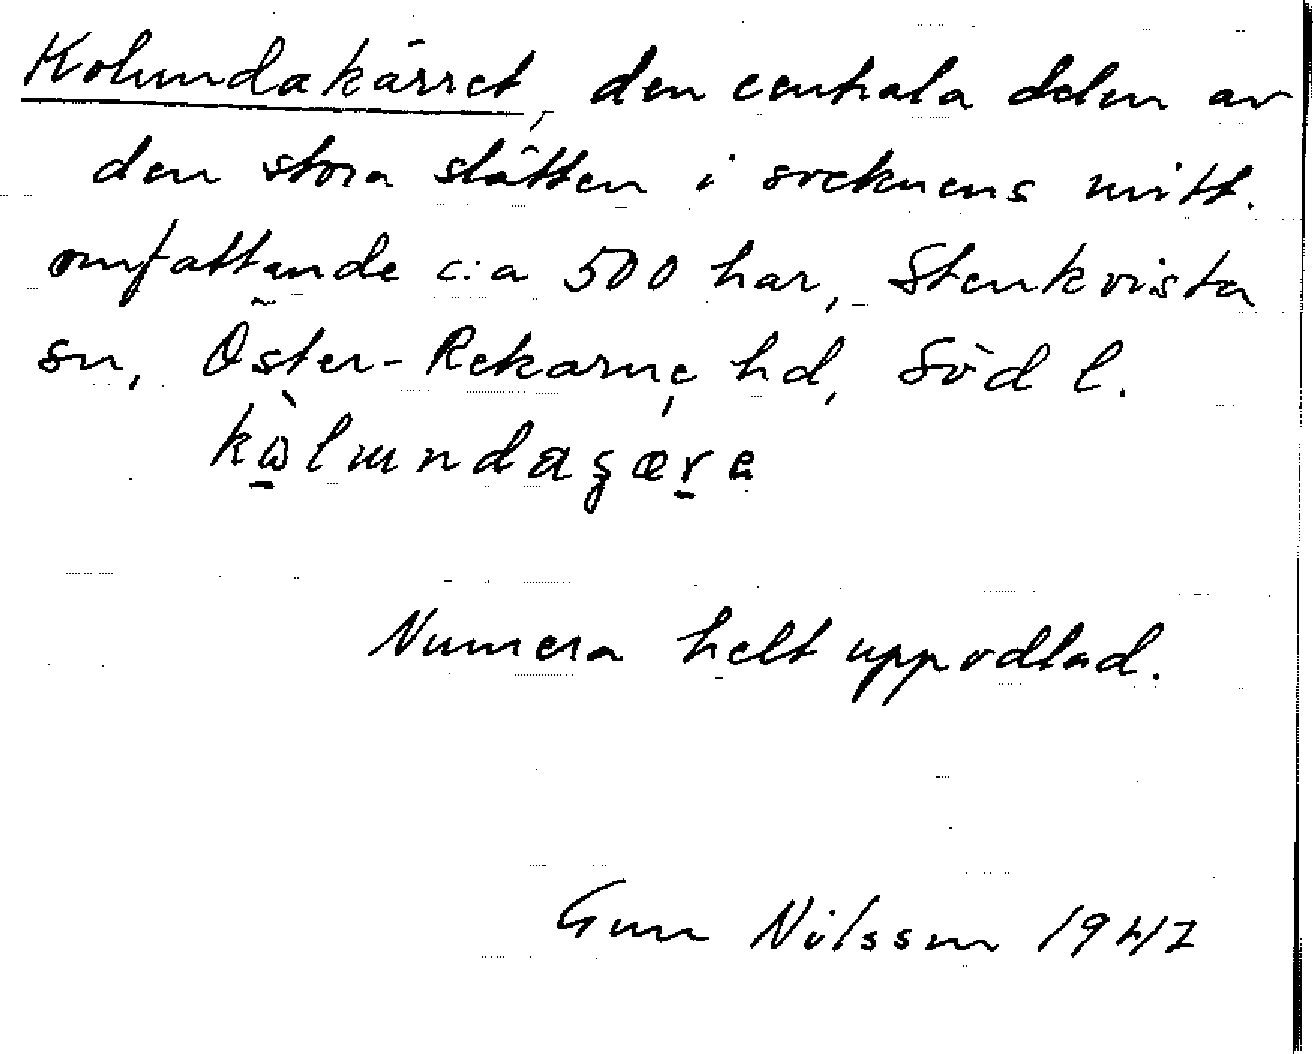 Kolundakärret, den centrala delen av
den stora slätten i socknens mitt.
omfattande c:a 500 har, Stenkvista
sn, Öster-Rekarne hd, Söd l.
Numera helt uppodlad.
Gun Nilsson 1947